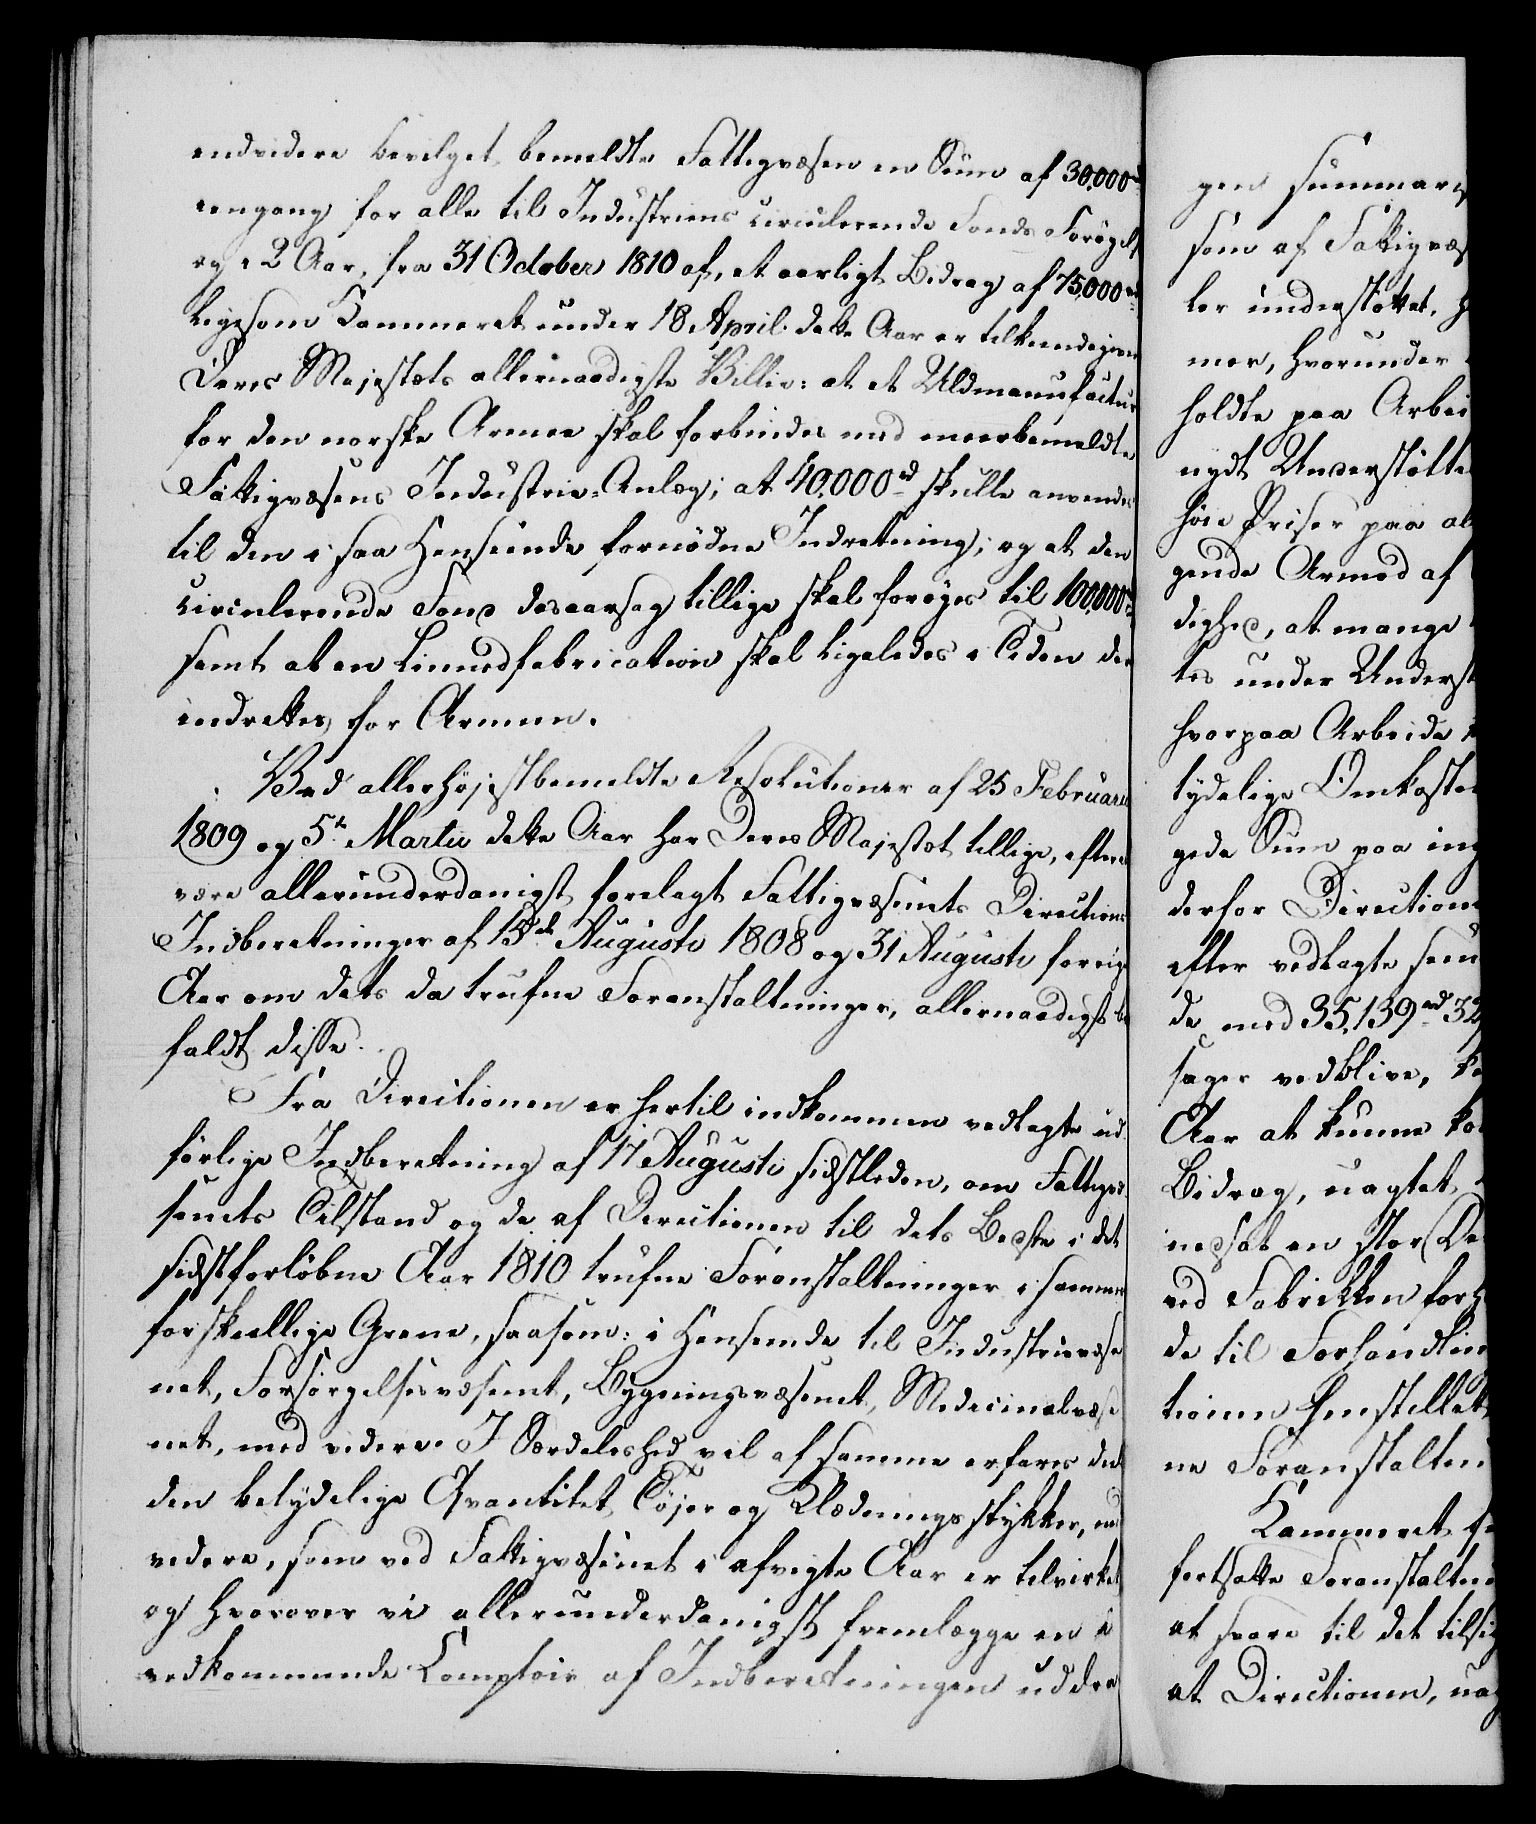 endvidere bevilget bemeldte Fattigvæsen en Sum af 30,000 rd
eengang for alle til Industriens circulerende Fonds Forøgelse
og i 2 Aar, fra 31 October 1810 af, et aarligt Bidrag af 75,000 rd
ligesom Kammeret under 18 April dette Aar er tilkiendegiven
Deres Majestæts allernaadigste Villie: at et Uldmanufactur
for den norske Armee skal forbindes med meerbemeldte
Fattigvæsens Industrie-Anlæg; at 40,000 rd skulle anvendes
til den i saa Henseende fornødne Indretning; og at den
circulerende Fond desaarsag tillige skal forøges til 100,000 rd
samt at en Linnedfabrication skal ligeledes i Tiden der
indrettes for Armeen.
Ved allerhøjstbemeldte Resolutioner af 25 Februarii
1809 og 5te Martii dette Aar har Deres Majestæt tillige, efter at
være allerunderdanigst forelagt Fattigvæsenets Directions
Indberetninger af 13de Augusti 1808 og 31 Augusti forrige
Aar om dets da trufne Foranstaltninger, allernaadigst bi-
faldt disse.
Fra Directionen er hertil indkommen vedlagte ud-
førlige Indberetning af 17 Augusti sidstleden, om Fattigvæ-
senets Tilstand og de af Directionen til dets Bedste i det
sidstforløbne Aar 1810 trufne Foranstaltninger i sammes
forskiellige Grene, saasom: i Henseende til Industrievæse-
net, Forsørgelsesvæsenet, Bygningsvæsenet, Medicinalvæse-
net, med videre. I Særdeleshed vil af samme erfares det
den betydelige Qvantitet Tøjer og Klædningsstykker, med
videre, som ved Fattigvæsenet i afvigte Aar er tilvirket
og hvorover vi allerunderdanigst fremlægge en i
vedkommende Comptoir af Indberetningen uddra-
gen summarisk
som af Fattigvæs
ler understøttet, h
mer, hvorunder
holdte paa Arbei
nydt Understøtte
høie Priser paa al
gende Armod af
dighed, at mange
tes under Underst
hvorpaa Arbeide
tydelige Omkostn
gede Sum paa ing
derfor Direction
efter vedlagte sum
de med 35,139 rd 32
sager vedblive, k
Aar at kunne ko
Bidrag, uagtet
nedsat en stor De
ved Fabrikken forh
de til Forhandlin
tionen henstillet
ne Foranstaltn
Kammeret f
fortsatte Foranstaltn
at svare til det tilsig
at Directionen, uag